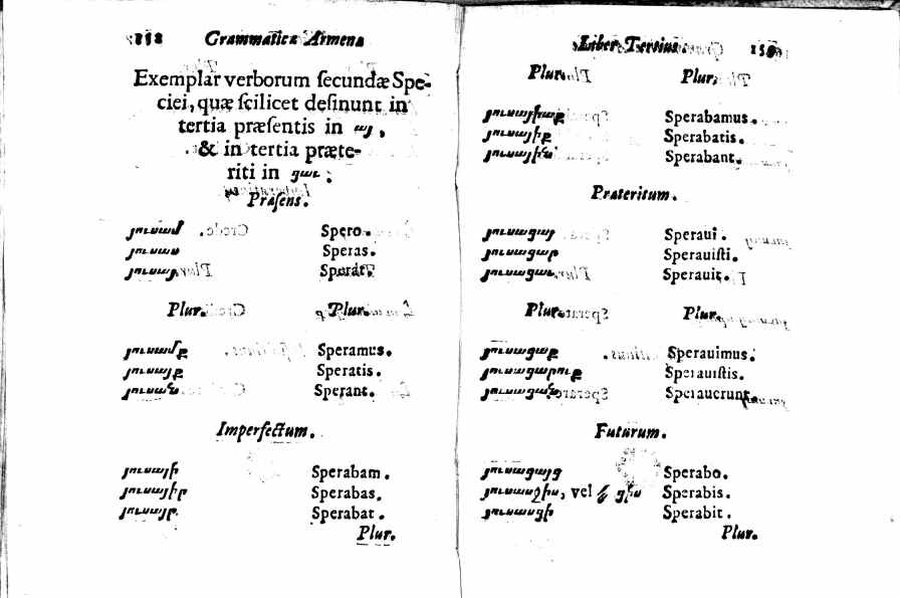 158 Grammaticæ Armenæ
Exemplar verborum ſecundæ Spe-
ciei, quæ ſcilicet deſinunt in
tertia præſentis in այ,
& in tertia præte-
riti in ցաւ:
Præſens.
յուսամ Spero.
յուսաս Speras.
յուսայ Sperat.
Plur. Plur.
յուսամք Speramus.
յուսայք Speratis.
յուսան Sperant.
Imperfectum.
յուսայի Sperabam.
յուսայիր Sperabas.
յուսայր Sperabat.
Plur.
Liber Tertius. 159
Plur. Plur.
յուսայիաք Sperabamus.
յուսայիք Sperabatis.
յուսային Sperabant.
Præteritum.
յուսացայ Speraui.
յուսացար Sperauiſti.
յուսացաւ Sperauit.
Plur. Plur.
յուսացաք Sperauimus.
յուսացարուք Sperauiſtis.
յուսացան Sperauerunt.
Futurum.
յուսացայց Sperabo.
յուսասջիս, vel ցիս Sperabis.
յուսասցի Sperabit.
Plur.